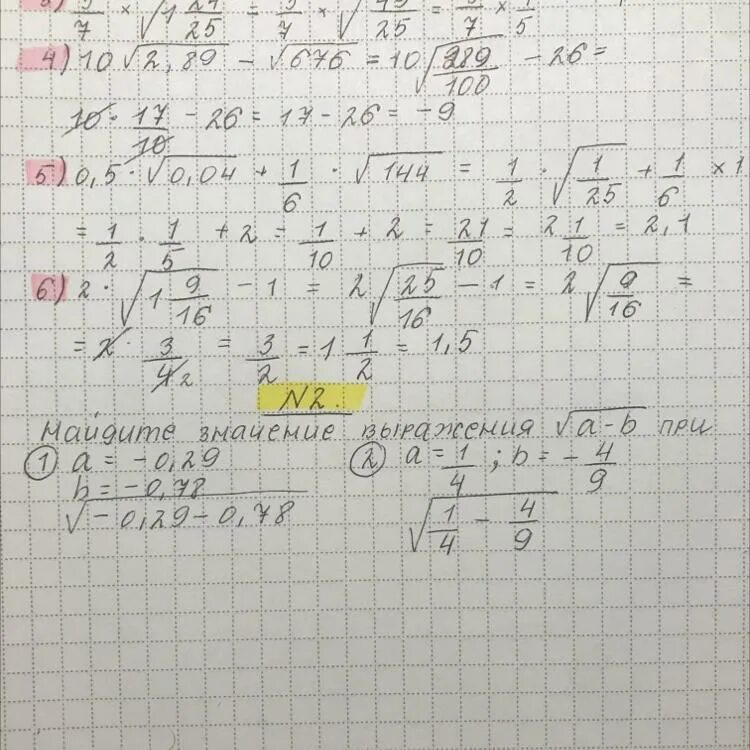 3) 3/7 × √(1 24/25) = 3/7 × √(49/25) = 3/7 × 1/5
4) 10√2,89 − √676 = 10√(289/100) − 26 =
10 · 17/10 − 26 = 17 − 26 = −9
5) 0,5 · √0,04 + 1/6 · √144 = 1/2 · √(1/25) + 1/6 × 1
= 1/2 · 1/5 + 2 = 1/10 + 2 = 21/10 = 2 1/10 = 2,1
6) 2 · √(1 9/16) − 1 = 2√(25/16) − 1 = 2√(9/16) =
= 2 · 3/4 2 = 3/2 = 1 1/2 = 1,5
N2.
Найдите значение выражения √(a-b) при
1 a = −0,29
b = −0,78
√(−0,29−0,78)
2 a = 1/4 ; b = − 4/9
√(1/4 − 4/9)